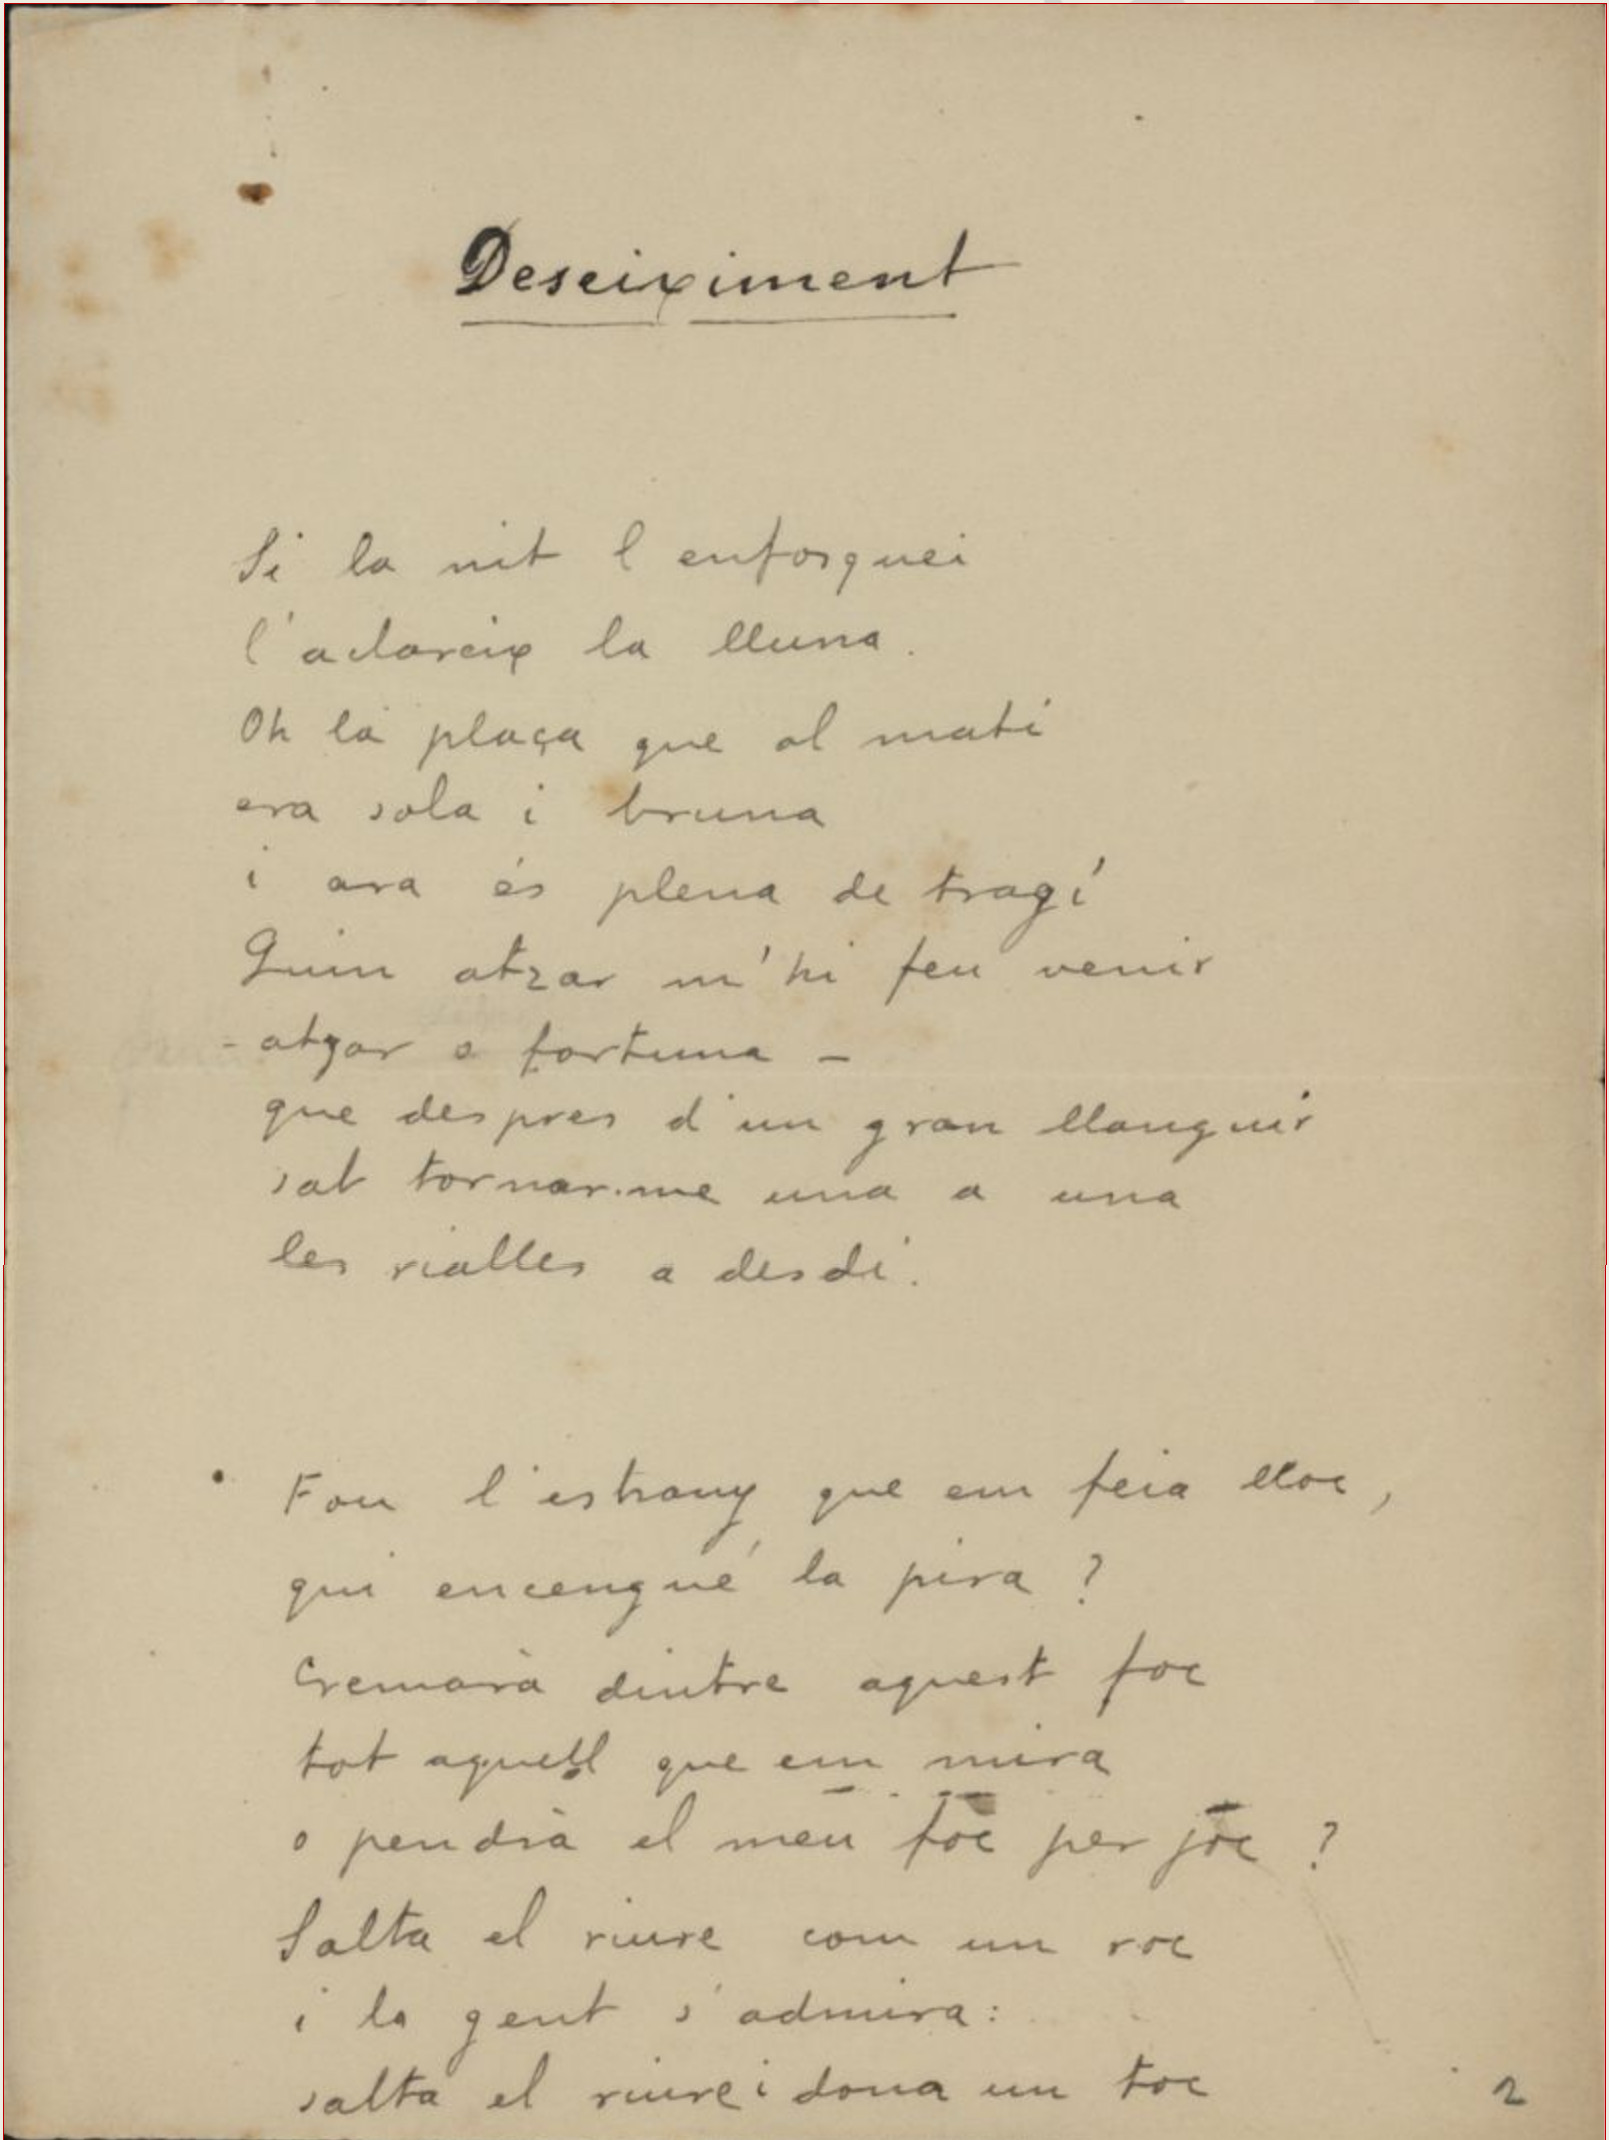 Deseiximent
Si la nit l enfosquei
l'aclareix la lluna.
Oh la plaça que al matí
era sola i bruna
i ara és plena de tragí
Quin atzar m'hi feu venir
- atzar o fortuna -
que despres d'un gran llanguir
sab tornar-me una a una
les rialles a desdí.
Fou l'estrany que em feia lloc,
qui encengué la pira ?
Cremarà dintre aquest foc
tot aquell que em mira
o pendrà el meu foc per joc ?
Salta el riure com un roc
i la gent s'admira:
salta el riure i dona un toc
2